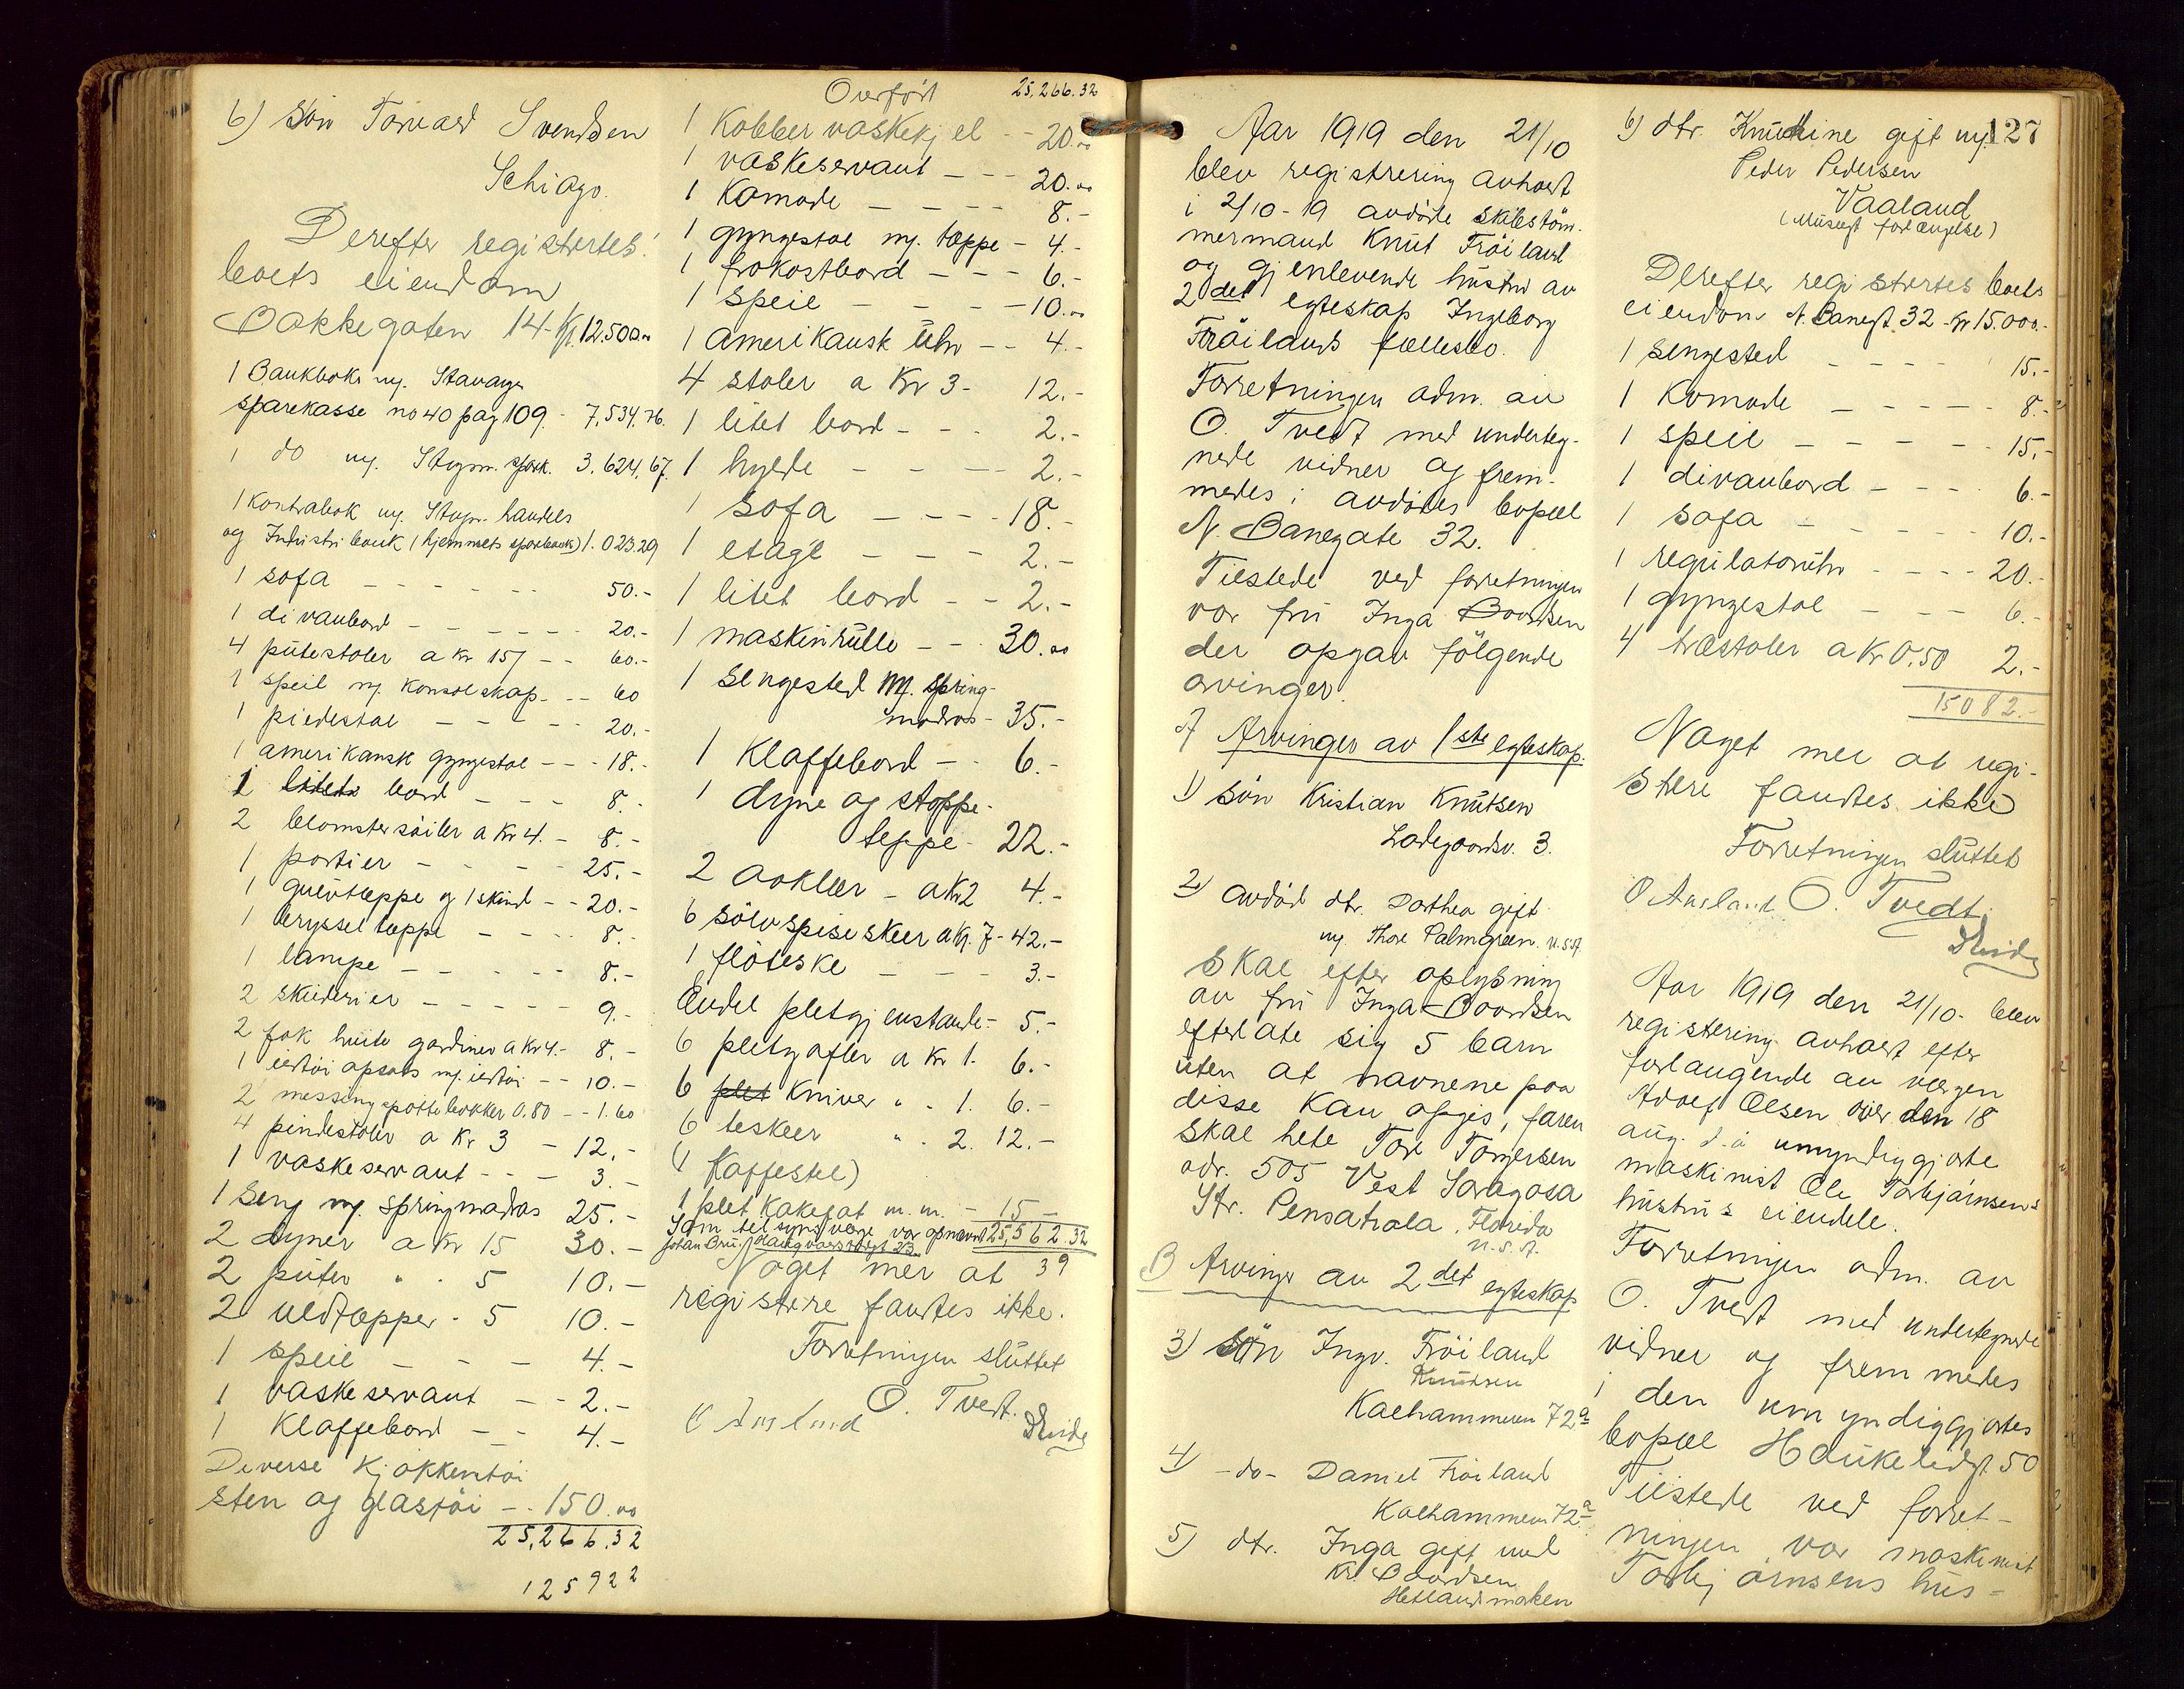 6) Søn Torvald Svendsen
Schiago.
Derefter registertes
boets eiendom
Bakkegaten 14 - Kr. 12.500.00
1 Bankbok m/. Stavanger
sparekasse no 40 pag 109. - 7,534.76
1 do m/. Stvgr. spark. 3.624,67
1 Kontrabok m/. Stvgr. handels
og Industri bank (hjemmets sparebank) 1.023.29
1 sofa - - - - - 50.-
1 divanbord - - - - - 20.-
4 pütestoler a Kr 15/ - - 60.-
1 speil m/. Konsolskap - - 60
1 piedestal - - - - 20.-
1 amerikansk gyngestol - - - 18.-
1 litet bord - - - 8.-
2 blomstersöiler a Kr 4. - 8.-
1 portier - - - - 25.-
1 gulvtæppe og 1 skind - - 20.-
1 bryssel tæppe - - - - 8.-
1 lampe - - - - - 8.-
2 skilderier - - - - - 9.-
2 fak hvite gardiner a Kr 4.- 8.-
1 ildtöi opsats m/. ildtöi - - 10.-
2 messing pottebakker 0.80 - - 1.60
4 pindestoler a Kr 3 - 12.-
1 vaskeservant - - - 3.-
1 Seng m/. springmadras 25.-
2 dyner a Kr 15 30.-
2 püter " . 5 10.-
2 uldtæpper . 5 10.-
1 speil - - - 4.-
1 vaskeservant - - 2.-
1 Klaffebord - - 4.-
Diverse Kjøkkentöi
sten og glastöi - - 150.00
25,266.32
125922
Overført 25,266.32
1 Kobber vaskekjel - - 20.00
1 vaskeservant - - - 20.00
1 Komode - - - - 8.-
1 gyngestol m/. tæppe - 4.-
1 frokostbord - - - 6.-
1 Speil - - - - 10.00
1 Amerikansk Uhr - - 4.-
4 stoler a Kr 3 - 12.-
1 litet bord - - - 2.-
1 hylde - - - - 2.-
1 sofa - - - - 18.-
1 etage - - - 2.-
1 litet bord - - 2.-
1 maskinrülle - - 30.00
1 Sengested m/. spring-
madras - 35.-
1 Klaffebord - - 6.-
1 dyne og stoppe-
teppe - 22.-
2 aaklær - a Kr 2 4.-
6 sölvspiseskeer a Kr. 7 - 42.-
1 flöteske - - - 3.-
Endel pletgjenstande - 5.-
6 pletgafler a Kr 1. 6.-
6 plet Kniver " . 1. 6.-
6 teskeer " . 2. 12.-
(1 Kaffestel)
1 plet Kakefat m. m. - 15 -
Som tilsynsværge var opnævnt 25,562.32
Johan Bru. Haugvaldstgt. 23
Noget mer at 39
registere fandtes ikke.
Forretningen slüttet
O. Tvedt.
O Aasland
Aar 1919 den 21/10
blev registrering avholdt
i 2/10-19 avdöde skibstöm-
mermand Knut Fröiland
og gjenlevende hustru av
2det egteskap Ingeborg
Fröilands fællesbo.
Forretningen adm. av
O. Tvedt med underteg-
nede vidner og frem-
medes i avdödes bopæl
N. Banegate 32.
Tilstede ved forretningen
var frü Inga Boardsen
der opgav fölgende
arvinger.
A Arvinger av 1ste egteskap.
1) Sön Kristian Knütsen
Ladegaardsv. 3.
2) avdöd dtr. Dorthea gift
m/. Thore Palmgreen. U.S.A
Skal efter oplysning
av frü Inga Boardsen
efterlate sig 5 barn
üten at navnene paa
disse kan opgis, faren
skal hete Tore Torgersen
adr. 505 Vest Saragosa
Str. Pensatrola. Florida
U.S.A.
B Arvinger av 2det egteskap
3) Sön Ingv. Fröiland
Knudsen
Kalhammeren 72a
4) - do - Daniel Fröiland
Kalhammeren 72a
5) dtr. Inga gift med
Kr. Boardsen
Hetlandsmarken
127
6) dtr. Knudine gift m/.
Peder Pedersen
Vaaland
(Musegt forlængelse)
Derefter registertes boets
eiendom N. Banegt. 32 - Kr 15.000.-
1 Sengested - - - - 15.-
1 Komode - - - - - 8.-
1 speil - - - - - 15.-
1 divanbord - - - - 6.-
1 sofa - - - - - 10.-
1 regülatorühr - - - - 20.-
1 gyngestol - - - 6.-
4 træstoler a Kr 0.50 2.-
15082.-
Noget mer at regi-
stere fandtes ikke
Forretningen slüttet
O Aasland O. Tvedt.
Aar 1919 den 21/10 - blev
registering avholdt efter
forlangende av værgen
Adolf Olsen over den 18
aug. d.å umyndiggjorte
maskinist Ole Torbjörnsens
hüstrüs eiendele.
Forretningen adm. av
O. Tvedt med undertegnede
vidner og fremmedes
i den umyndiggjortes
bopæl Haukeliedgt. 50
Tilstede ved forret-
ningen var maskinist
Torbjörnsens hüs-